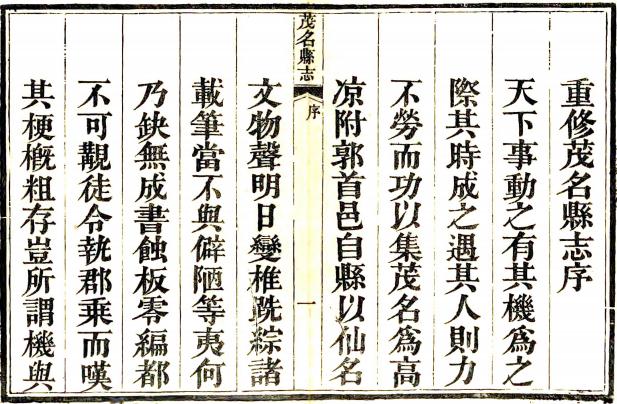 重修茂名縣志序
天下事動之有其機爲之
際其時成之遇其人則力
不勞而功以集茂名爲高
凉附郭首邑自縣以仙名
茂名縣志
序
一
文物聲明日變椎跣綜諸
載筆當不與僻陋等夷何
乃缺無成書蝕板零編都
不可觀徒令執郡乘而嘆
其梗槪粗存豈所謂機與